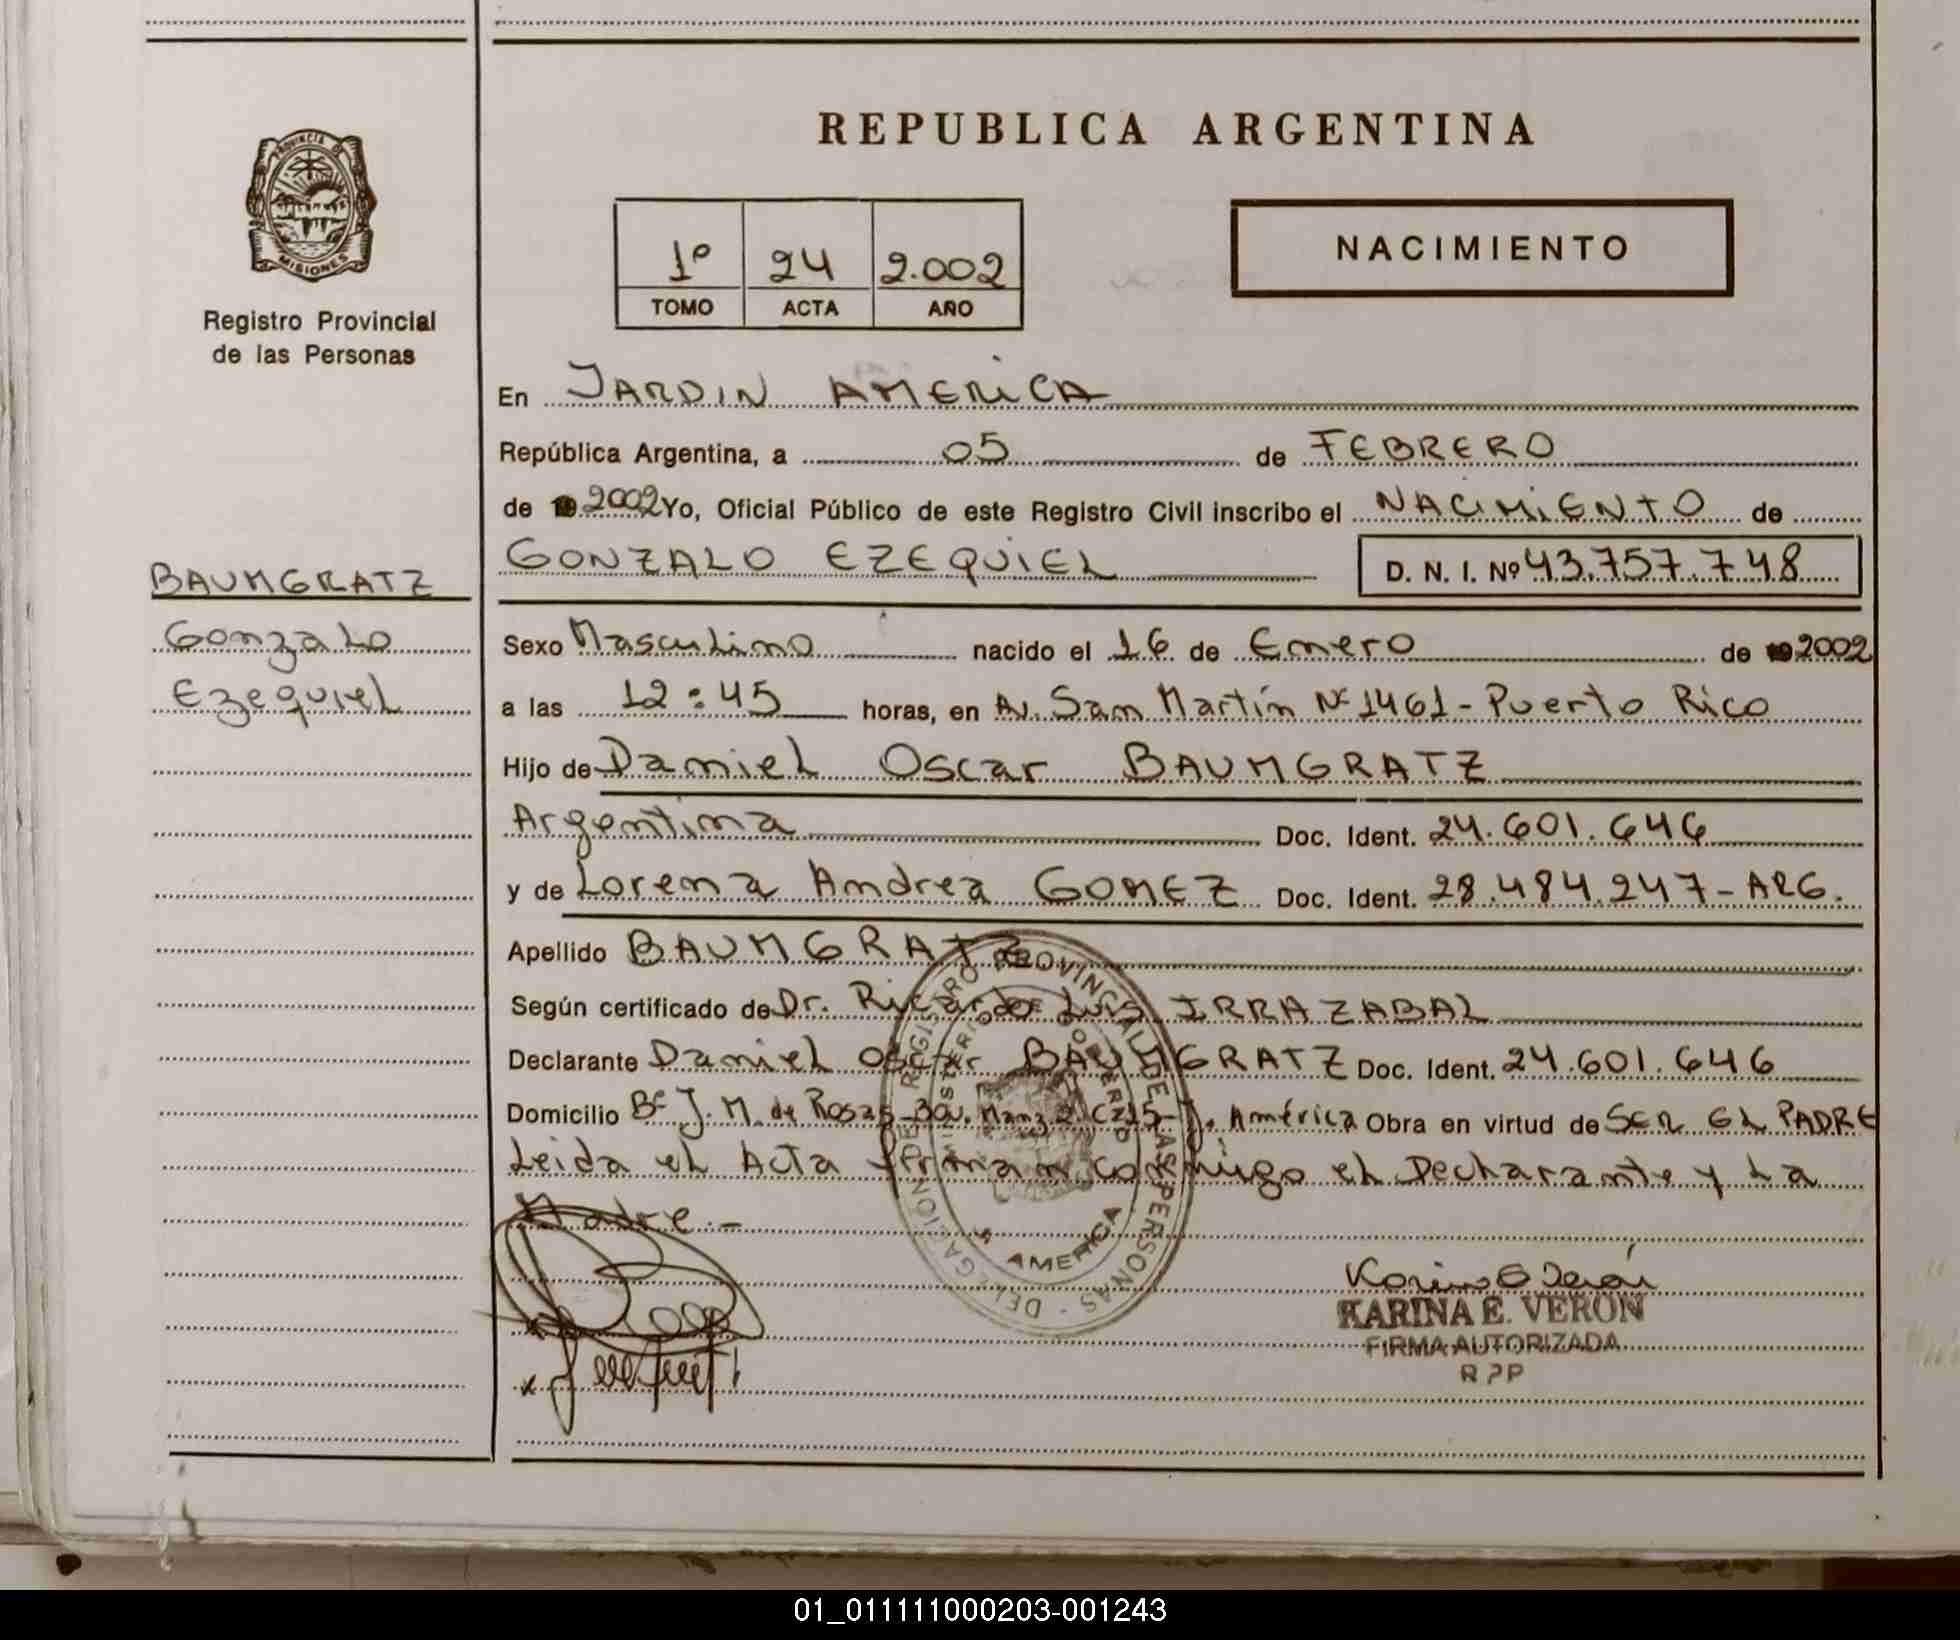 REPUBLICA ARGENTINA
PROVINCIA DE
MISIONES
Registro Provincial
de las Personas
1º 24 2.002
TOMO ACTA AÑO
NACIMIENTO
En JARDIN AMERICA
República Argentina, a 05 de FEBRERO
de 19 2002 Yo, Oficial Público de este Registro Civil inscribo el NACIMIENTO de
GONZALO EZEQUIEL D. N. I. Nº 43.757.748
BAUMGRATZ
Gonzalo
Ezequiel
Sexo Masculino nacido el 16 de Enero de 19 2002
a las 12:45 horas, en Av. San Martín Nº 1461 - Puerto Rico
Hijo de Daniel Oscar BAUMGRATZ
Argentina Doc. Ident. 24.601.646
y de Lorena Andrea GOMEZ Doc. Ident. 28.484.247 - ARG.
Apellido BAUMGRATZ
Según certificado de Dr. Ricardo Luis IRRAZABAL
Declarante Daniel Oscar BAUMGRATZ Doc. Ident. 24.601.646
Domicilio Bº J. M. de Rosas - América Obra en virtud de SER EL PADRE
Leida el Acta firman conmigo el Declarante y La
Madre.-
REGISTRO PROVINCIAL DE LAS PERSONAS - DELEGACIÓN
MINISTERIO DE GOBIERNO
AMERICA
KARINA E. VERON
FIRMA AUTORIZADA
RPP
01_011111000203-001243